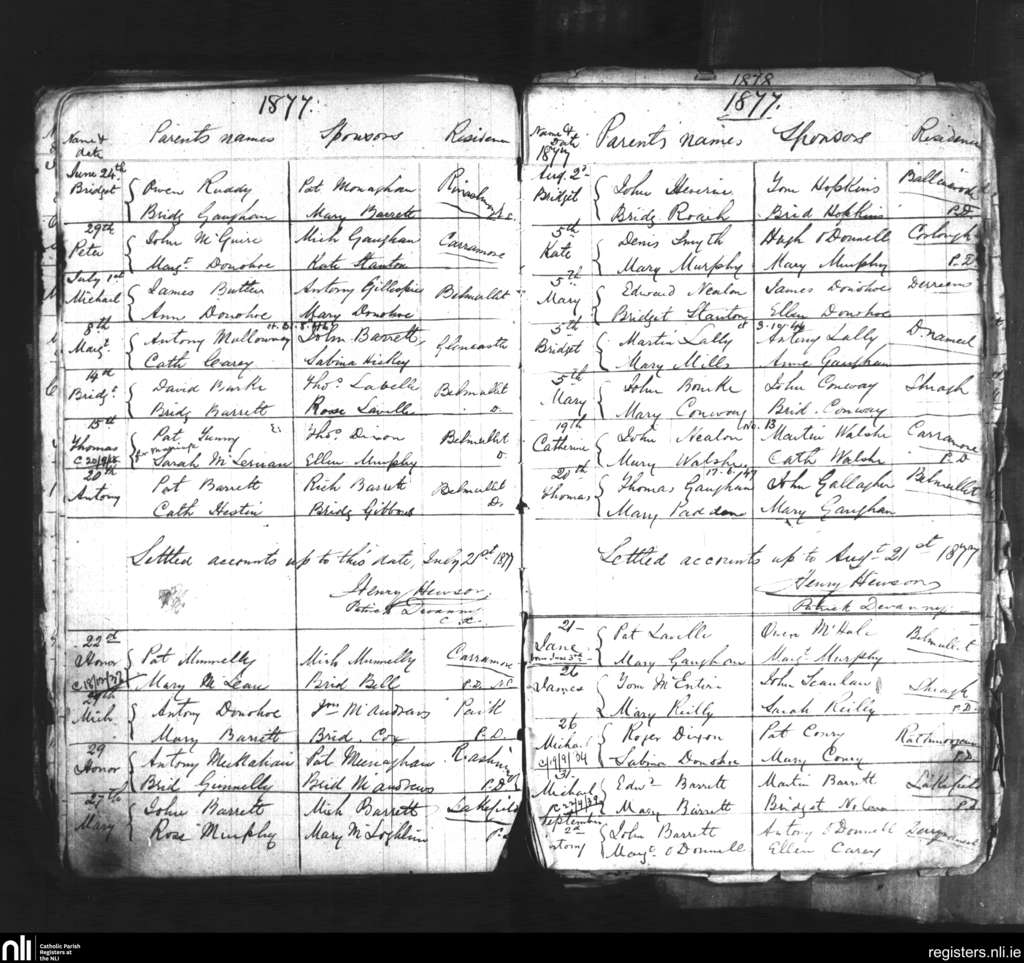 1877.
Name & date Parents names Sponsors Residence
June 24th Bridget Owen Ruddy Pat Monaghan
Bridg Gaughan Mary Barrett
29th Peter John McGuire Mich Gaughan Carramore
Margt Donohoe Kate Stanton
July 1st Michael James Butler Antony Gillespie Belmullet
Ann Donohoe Mary Donohoe
8th Margt Antony Mulloway John Barrett Glencastle
Cath Carey Sabina Hickey
14th Bridgt David Burke Thos Lavelle Belmullet
Bridg Barrett Rose Lavelle D.
15th Thomas Pat Tunny Thos Dixon Belmullet
Sarah McLernan Ellen Murphy D
20th Antony Pat Barrett Rich Barrett Belmullet
Cath Hestin Bridg Gibbons D.
Settled accounts up to this date, July 21st 1877
Henry Hewson
Patrick Devanny
C.C.
22d Honor Pat Munnelly Mich Munnelly Carramore
Mary McLean Brid Bell P.D.
29th Mich Antony Donohoe Jno McAndrews
Mary Barrett Brid. Cox P.D.
29 Honor Antony Pat Monaghan
Brid Ginnelly Brid McAndrews P.D
27th Mary John Barrett Mich Barrett Lakefield
Rose Murphy Mary McLoghlin P.D
1878
1877.
Name & Date Parents names Sponsors Residence
1877
Aug. 2d Bridget John Heverin Tom Hopkins
Bridg Roach Brid Hopkins P.D.
5th Kate Denis Smyth Hugh O'Donnell Corlough
Mary Murphy Mary Murphy P.D
5th Mary Edward Nealon James Donohoe Derreens
Bridget Stanton Ellen Donohoe
5th Bridget Martin Lally Antony Lally
Mary Mills Anne Gaughan
5th Mary John Bourke John Conway Shragh
Mary Conway Brid. Conway
19th Catherine John Nealon Martin Walshe Carramore
Mary Walshe Cath Walshe P.D
20th Thomas Thomas Gaughan John Gallagher Belmullet
Mary Padden Mary Gaughan
Settled accounts up to Augt 21st 1877
Henry Hewson
Patrick Devanny
21 Jane Pat Lavelle Owen McHale Belmullet
Mary Gaughan Margt Murphy
26 James Tom McEntire John Scanlan Shragh
Mary Reilly Sarah Reilly P.D.
26 Michael Roger Dixon Pat Conry
C/9/9/34 Sabina Donohoe Mary P.D.
31 Michael Edwd Barrett Martin Barrett Lakefield
Mary Barrett Bridget P.D
September
2d Antony John Barrett Antony O'Donnell
Margt O'Donnell Ellen Carey
nli Catholic Parish Registers at the NLI
registers.nli.ie